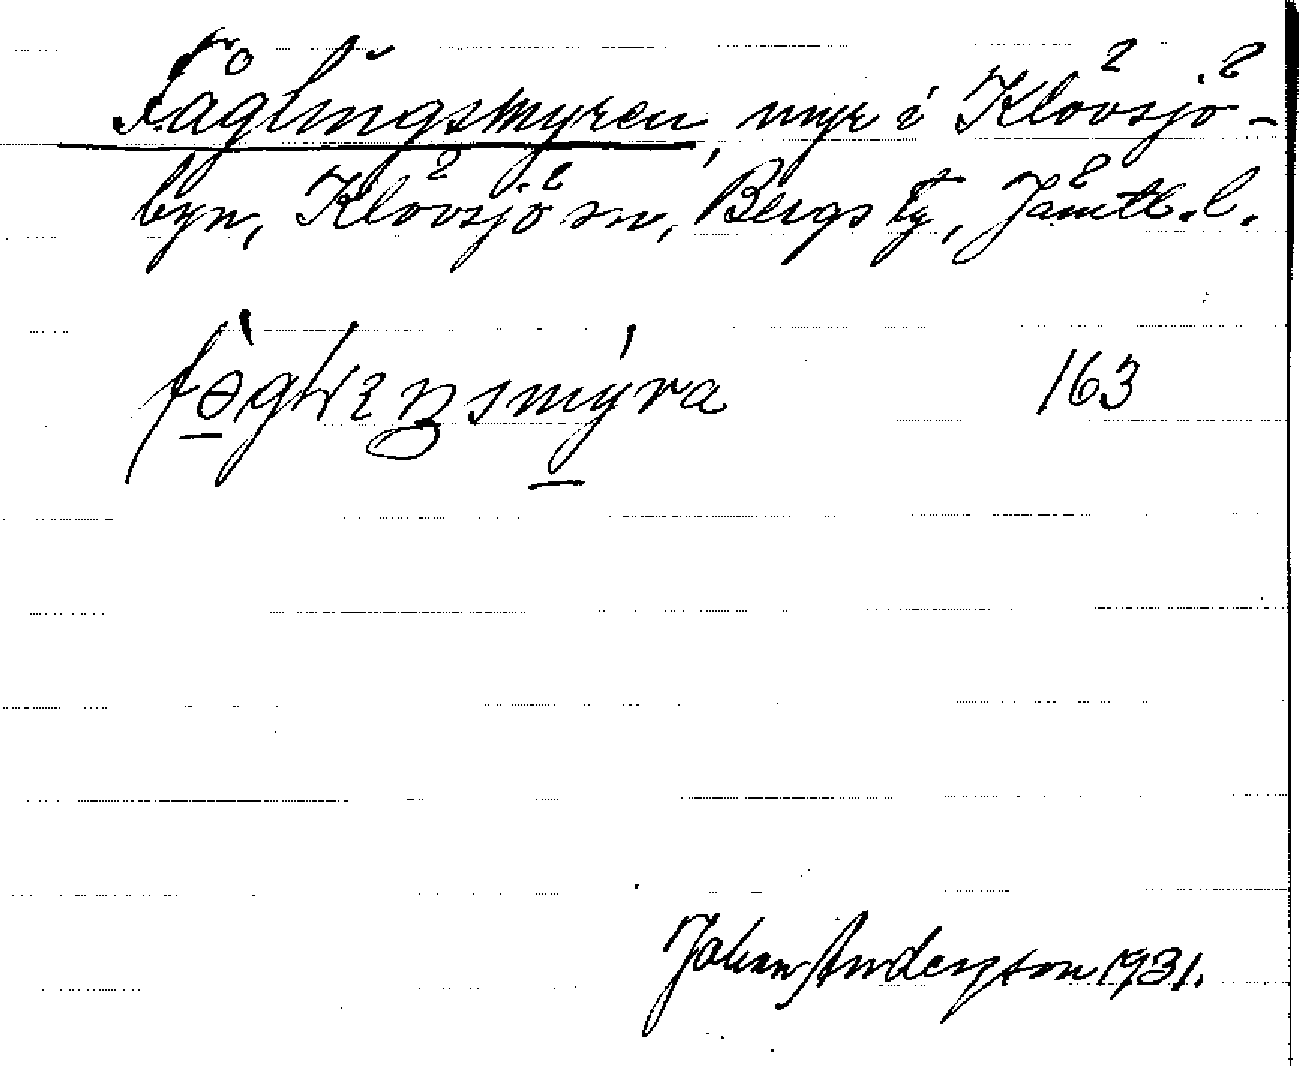 Fåglingsmyren, myr i Klövsjö-
byn, Klövsjö sn, Bergs tg, Jämtl. l.
163
Johan Anderzson 1931.